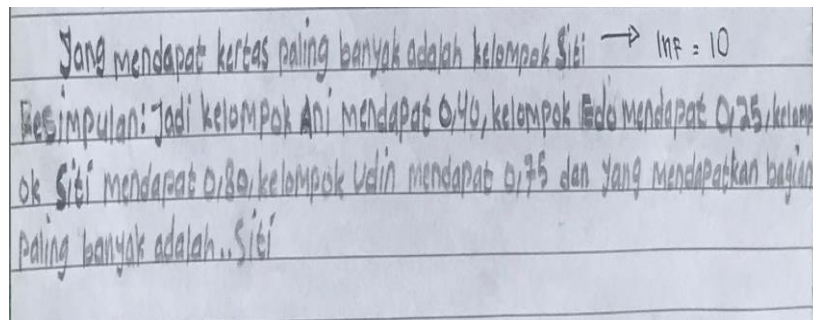 Yang mendapat kertas paling banyak adalah kelompok Siti → Inf = 10
Kesimpulan: Jadi kelompok Ani mendapat 0,40, kelompok Edo mendapat 0,25, kelomp
ok Siti mendapat 0,80, kelompok Udin mendapat 0,75 dan yang mendapatkan bagian
paling banyak adalah.. Siti